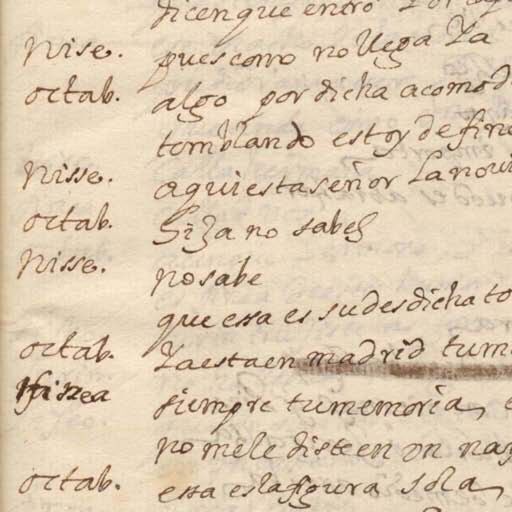 dicen que entro
Nise. pues como no llega Ya
octab. algo por dicha acomod
temblando estoy de fine
Nisse. aqui esta señor la novi
octab. hija no sabes
Nisse. no sabe
que essa es su desdicha to
octab. Ya esta en madrid tum
finea siempre tu memoria,
no me le diste en un nay
octab. essa es la figura sola,